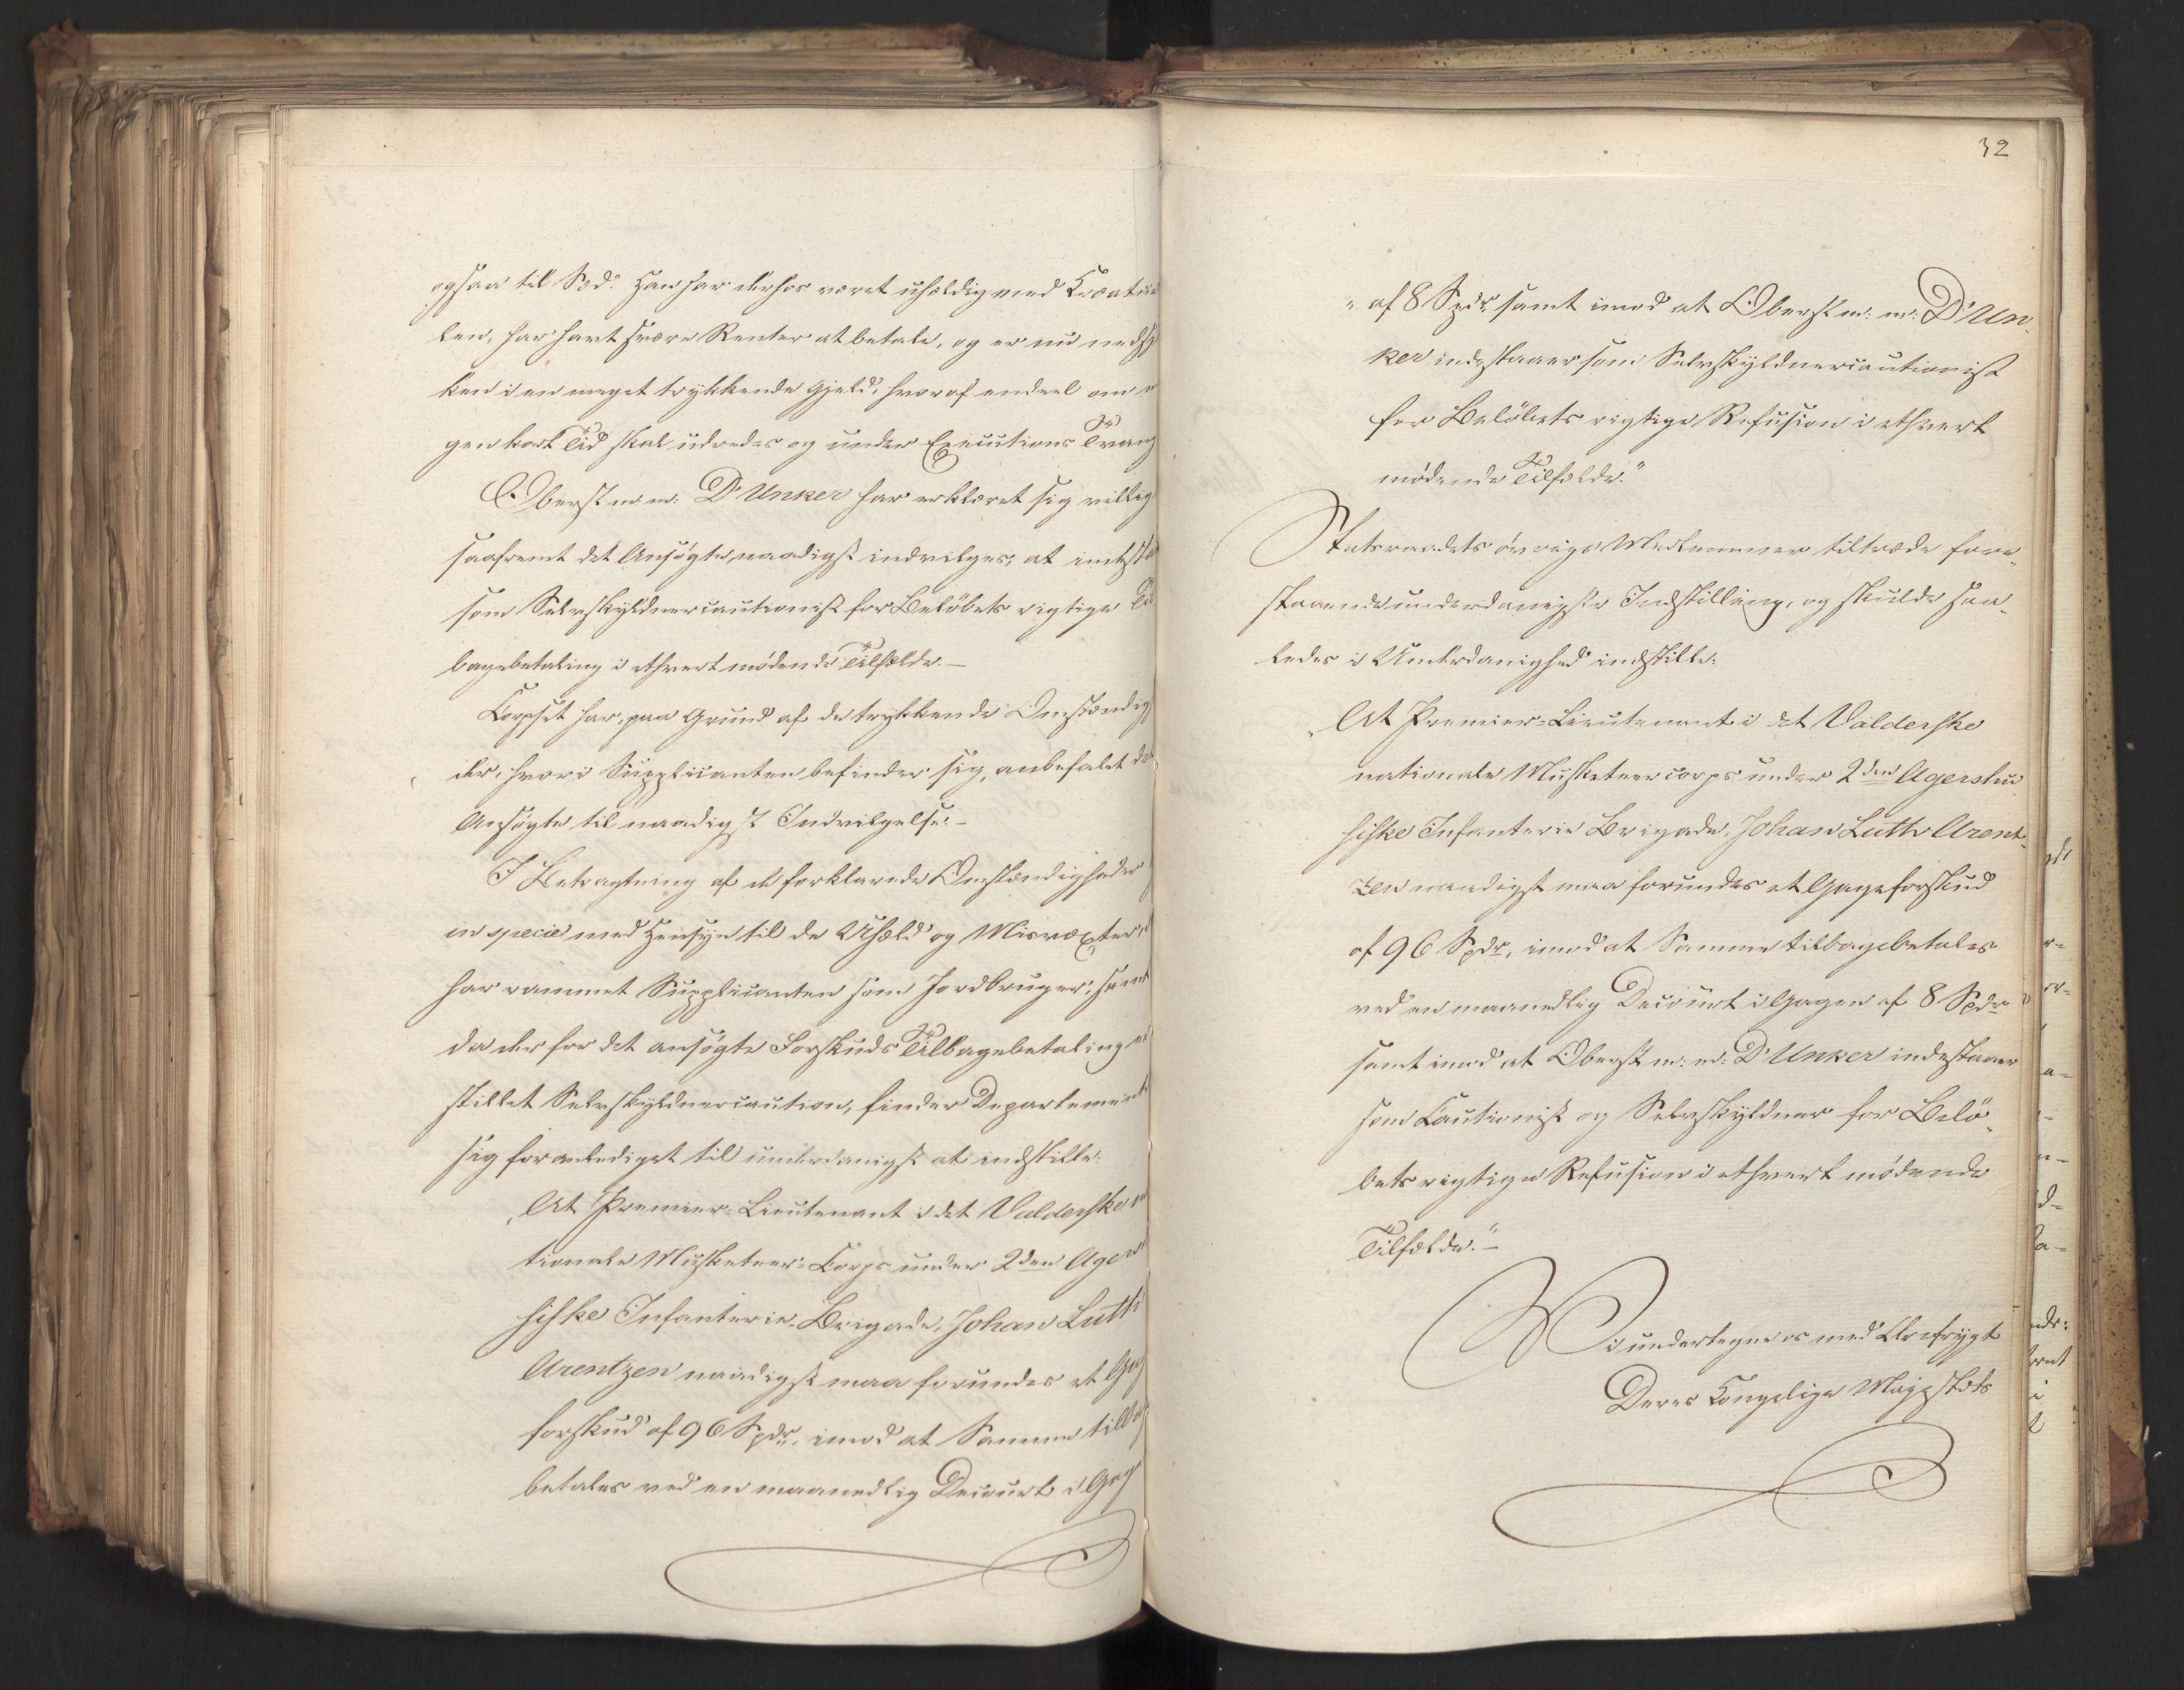 ogsaa til Sæd. Han har derhos været uheldig med Creatu
ler, har havt svære Renter at betale, og er nu neds
ken i en meget trykkende Gjeld, hvoraf endeel om
gen kort Tid skal udredes og under Executions Tvang
Oberst m. m. D'Unker har erklæret sig villig
saafremt det Ansögte naadigst indvilges, at indesta
som Selvskyldnercautionist for Belöbets rigtige Til
bagebetaling i ethvert mödende Tilfælde.—
Corpset har, paa Grund af de trykkende Omstændig
der, hvori Supplicanten befinder sig, anbefalet det
Ansögte til naadigst Indvilgelse.—
I Betragtning af de forklarede Omstændigheder
in specie med Hensyn til de Uheld og Misvæxter,
har rammet Supplicanten som Jordbruger, samt
da der for det ansögte Forskuds Tilbagebetaling er
stillet Selvskyldnercaution, finder Departement
sig foranlediget til underdanigst at indstille:
„At Premier-Lieutenant i det Valderske
tionale Musketeer-Corps under 2den Agers
husiske Infanterie-Brigade, Johan Luth
Arentzen naadigst maa forundes et Gag
forskud af 96 Spdr, imod at Samme tilbag
betales ved en maanedlig Decourt i Gag
32
„ af 8 Spdr, samt imod at Oberst m: m: D'Un-
ker indestaaer som Selvskyldnercautionist
for Belöbets rigtige Refusion i ethvert
mödende Tilfælde."
Statsraadets övrige Medlemmer tiltræde fore-
staaende underdanigste Indstilling, og skulde saa-
ledes i Underdanighed indstille:
„At Premier-Lieutenant i det Valderske
nationale Musketeercorps under 2den Agershu
siske Infanterie Brigade, Johan Luth Arent-
zen naadigst maa forundes et Gageforskud
af 96 Spdr, imod at Samme tilbagebetales
ved en maanedlig Decourt i Gagen af 8 Spdr
samt imod at Oberst m: m: D'Unker indestaaer
som Cautionist og Selvskyldner for Belö-
bets rigtige Refusion i ethvert mödende
Tilfælde."—
Vi undertegne os med Ærefrygt
Deres Kongelige Majestæts